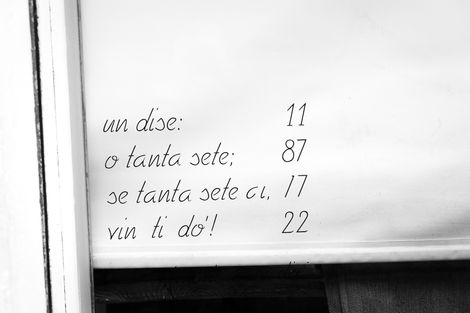 un dise: 11
o tanta sete; 87
se tanta sete ai, 17
vin ti do'! 22